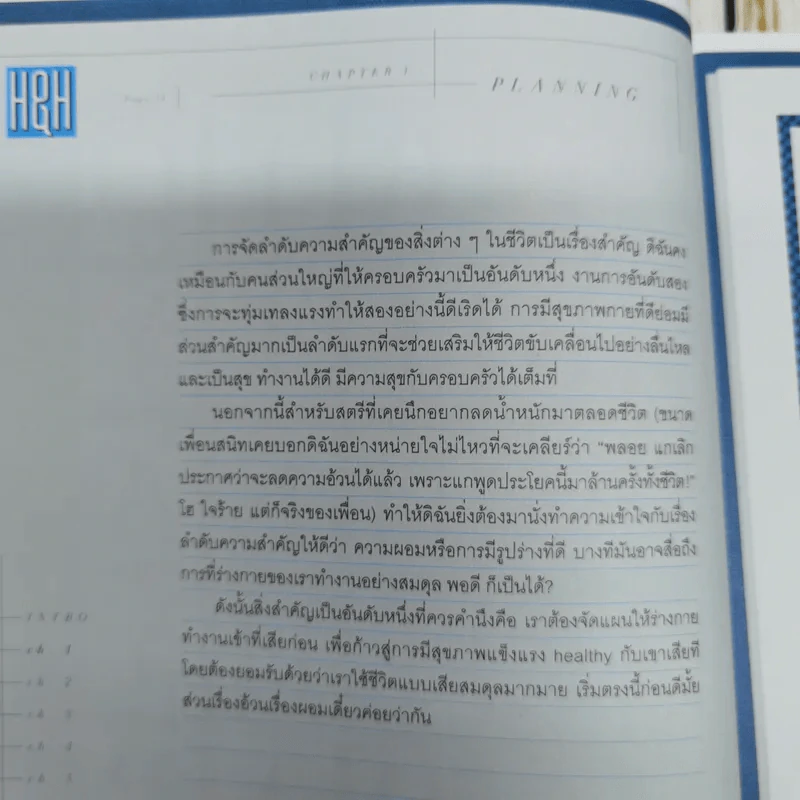 HBH
CHAPTER 1
PLANNING
การจัดลำดับความสำคัญของสิ่งต่าง ๆ ในชีวิตเป็นเรื่องสำคัญ ดิฉันคง
เหมือนกับคนส่วนใหญ่ที่ให้ครอบครัวมาเป็นอันดับหนึ่ง งานการอันดับสอง
ซึ่งการจะทุ่มเทลงแรงทำให้สองอย่างนี้ดีเริดได้ การมีสุขภาพกายที่ดีย่อมมี
ส่วนสำคัญมากเป็นลำดับแรกที่จะช่วยเสริมให้ชีวิตขับเคลื่อนไปอย่างลื่นไหล
และเป็นสุข ทำงานได้ดี มีความสุขกับครอบครัวได้เต็มที่
นอกจากนี้สำหรับสตรีที่เคยนึกอยากลดน้ำหนักมาตลอดชีวิต (ขนาด
เพื่อนสนิทเคยบอกดิฉันอย่างหน่ายใจไม่ไหวที่จะเคลียร์ว่า “พลอย แกเลิก
ประกาศว่าจะลดความอ้วนได้แล้ว เพราะแกพูดประโยคนี้มาล้านครั้งทั้งชีวิต!”
โฮ ใจร้าย แต่ก็จริงของเพื่อน) ทำให้ดิฉันยิ่งต้องมานั่งทำความเข้าใจกับเรื่อง
ลำดับความสำคัญให้ดีว่า ความผอมหรือการมีรูปร่างที่ดี บางทีมันอาจสื่อถึง
การที่ร่างกายของเราทำงานอย่างสมดุล พอดี ก็เป็นได้?
ดังนั้นสิ่งสำคัญเป็นอันดับหนึ่งที่ควรคำนึงคือ เราต้องจัดแผนให้ร่างกาย
ทำงานเข้าที่เสียก่อน เพื่อก้าวสู่การมีสุขภาพแข็งแรง healthy กับเขาเสียที
โดยต้องยอมรับด้วยว่าเราใช้ชีวิตแบบเสียสมดุลมากมาย เริ่มตรงนี้ก่อนดีมั้ย
ส่วนเรื่องอ้วนเรื่องผอมเดี๋ยวค่อยว่ากัน
INTRO
ch 1
ch 2
ch 3
ch 4
ch 5